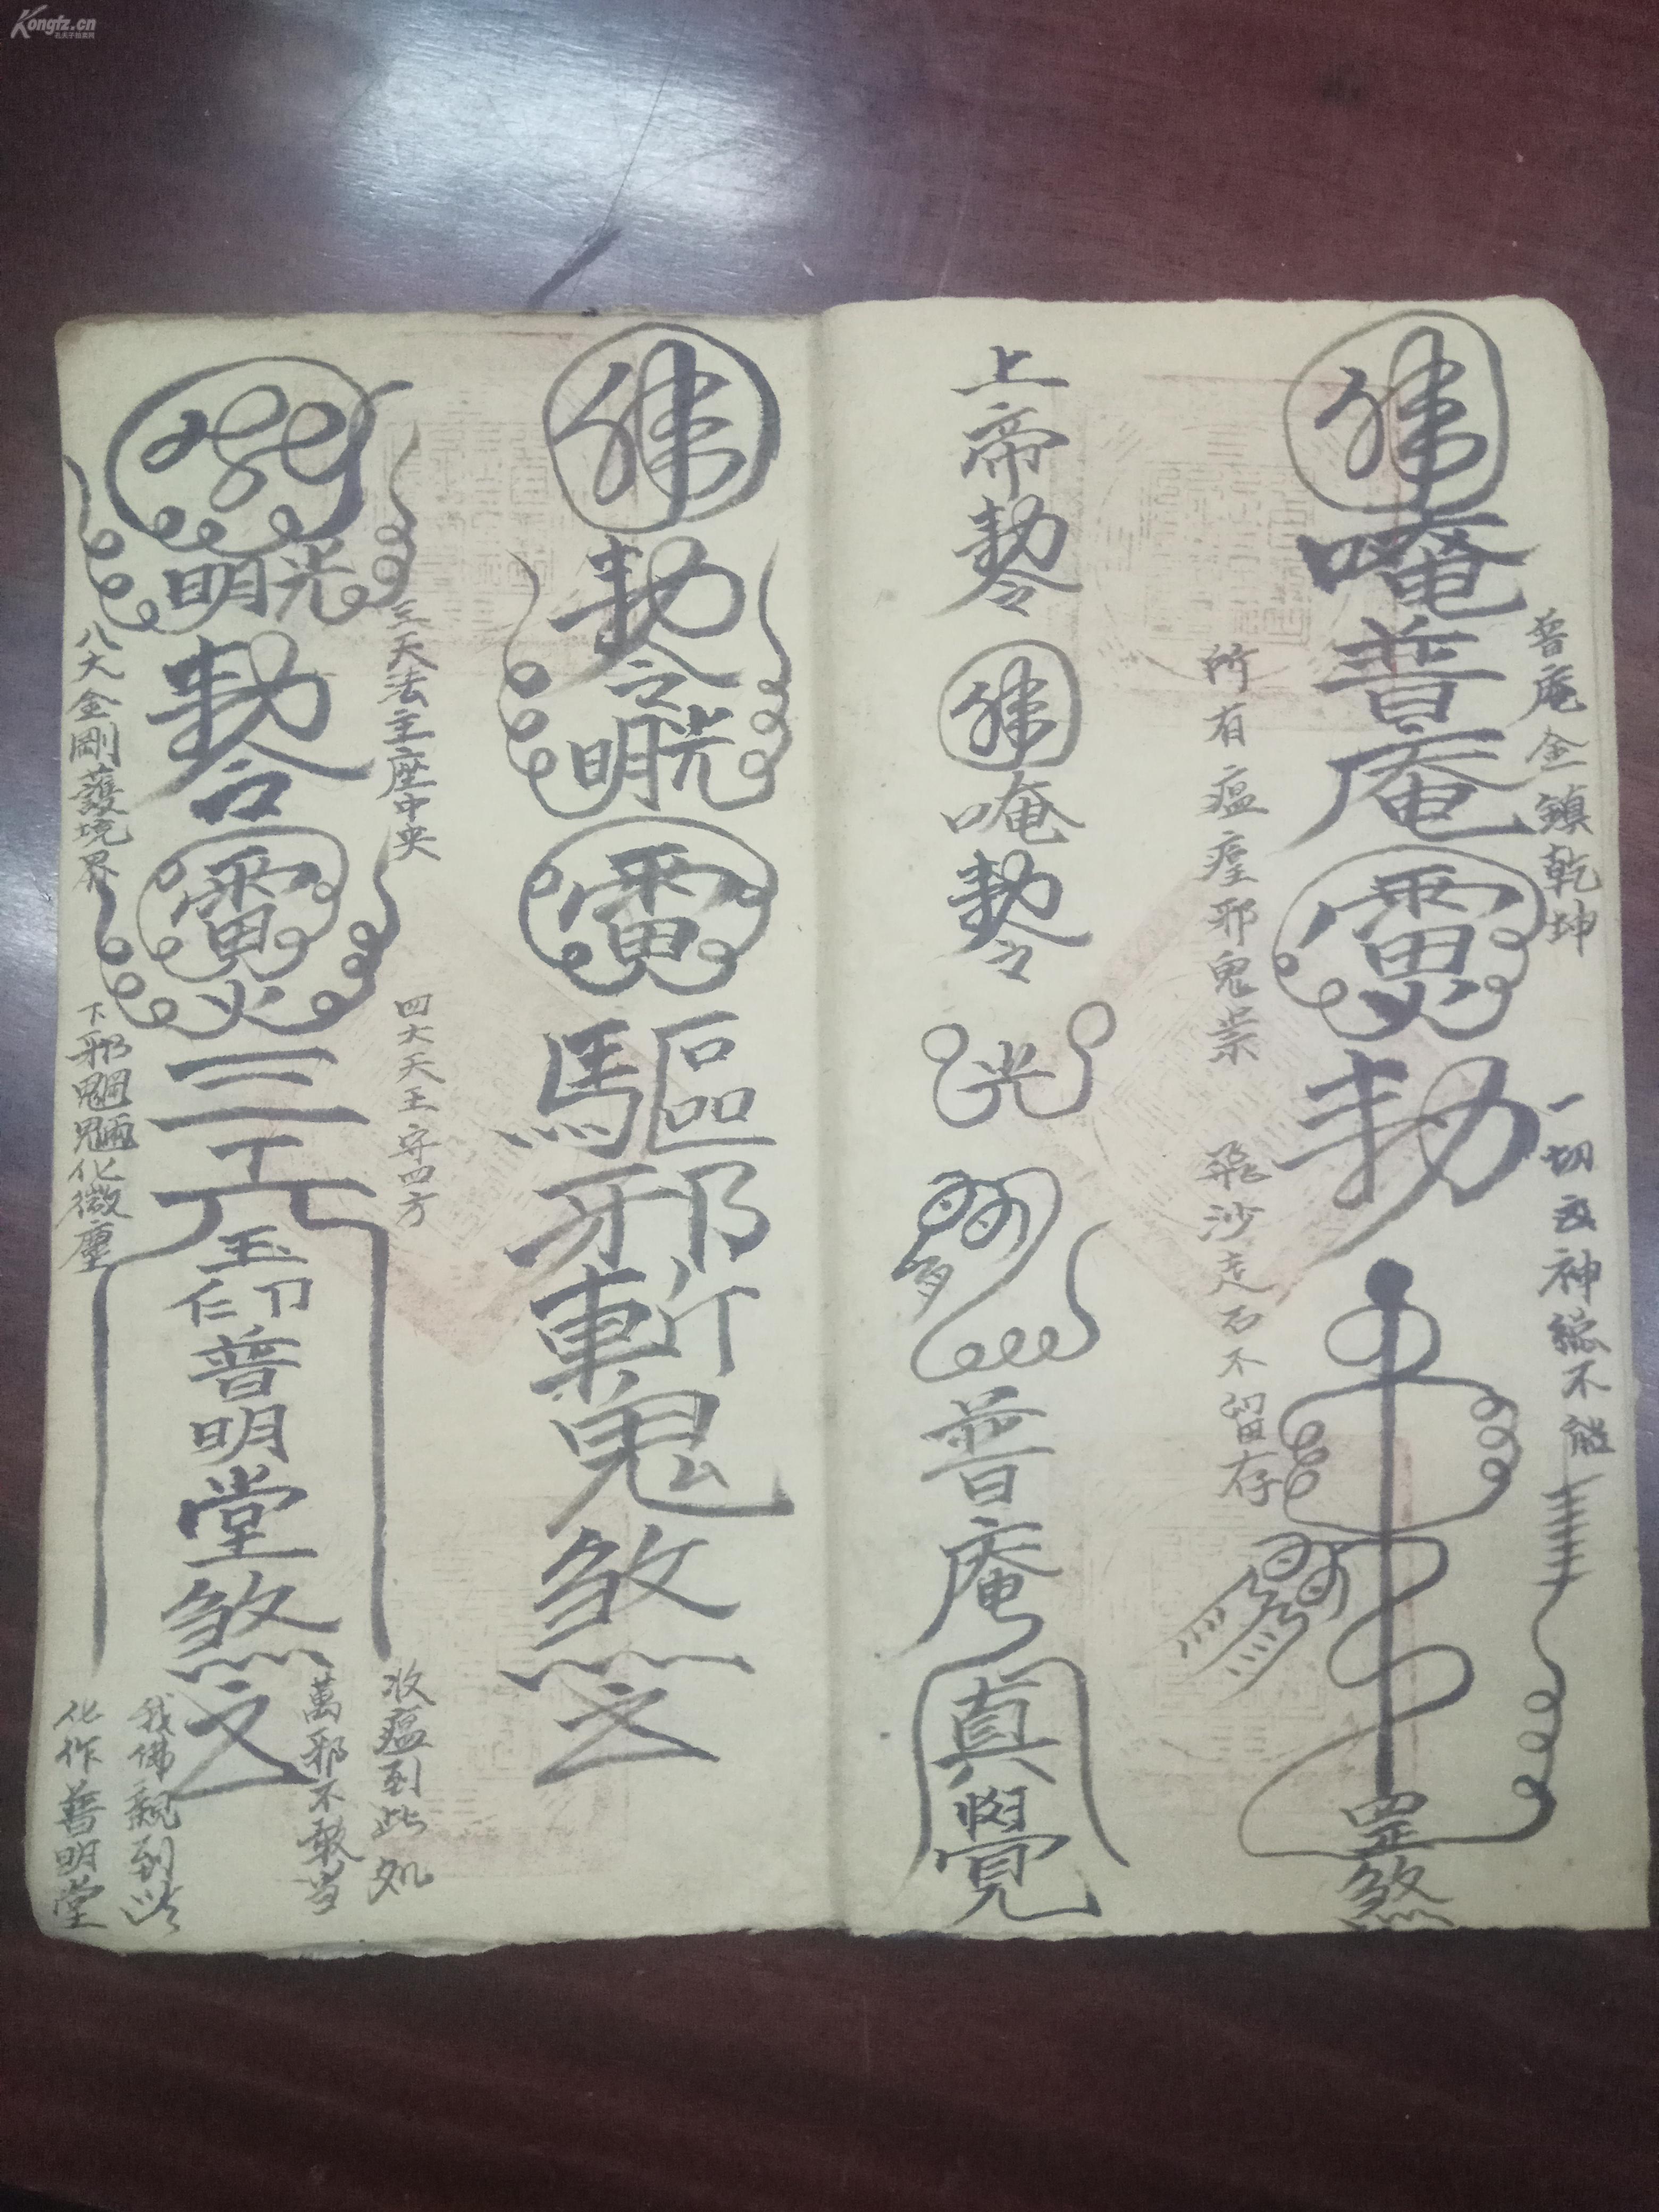 Kongfz.cn
佛
唵
普
庵
雷
火
勅
罡
煞
普庵金鎮乾坤
一切 神總不能
所有瘟瘽邪鬼祟
飛沙走石不留存
上帝勅令
佛
唵
勅令
光
普
庵
真
覺
佛
勅令
光明
雷
驅
邪
斬
鬼
煞
之
三天法主座中央
四大天王守四方
收瘟到此处
萬邪不敢当
光明
勅令
雷
火
三
玉
印
普
明
堂
煞
之
八大金剛護境界
下邪魍魎化微塵
我佛親到此
化作普明堂